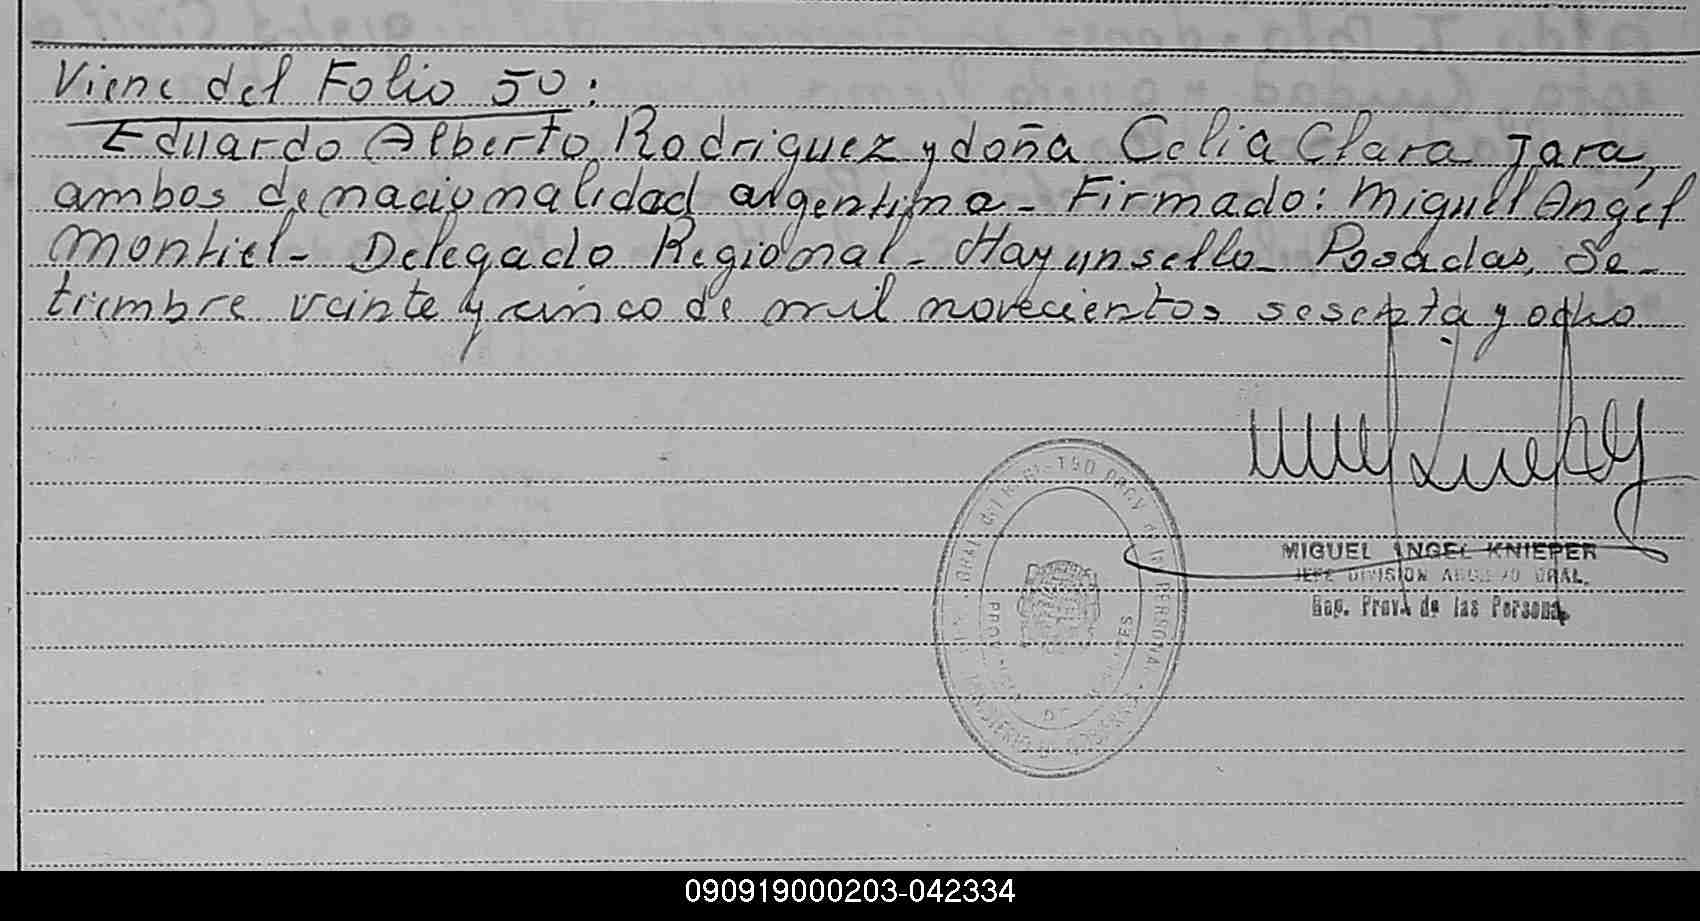 Viene del Folio 50:
Eduardo Alberto Rodriguez y doña Celia Clara Jara,
ambos de nacionalidad argentina - Firmado: Miguel Angel
Montiel - Delegado Regional - Hay un sello - Posadas, Se-
tiembre veinte y cinco de mil novecientos sesenta y ocho
MIGUEL ANGEL KNIEPER
JEFE DIVISION ARCHIVO GRAL.
Reg. Prov. de las Personas
090919000203-042334